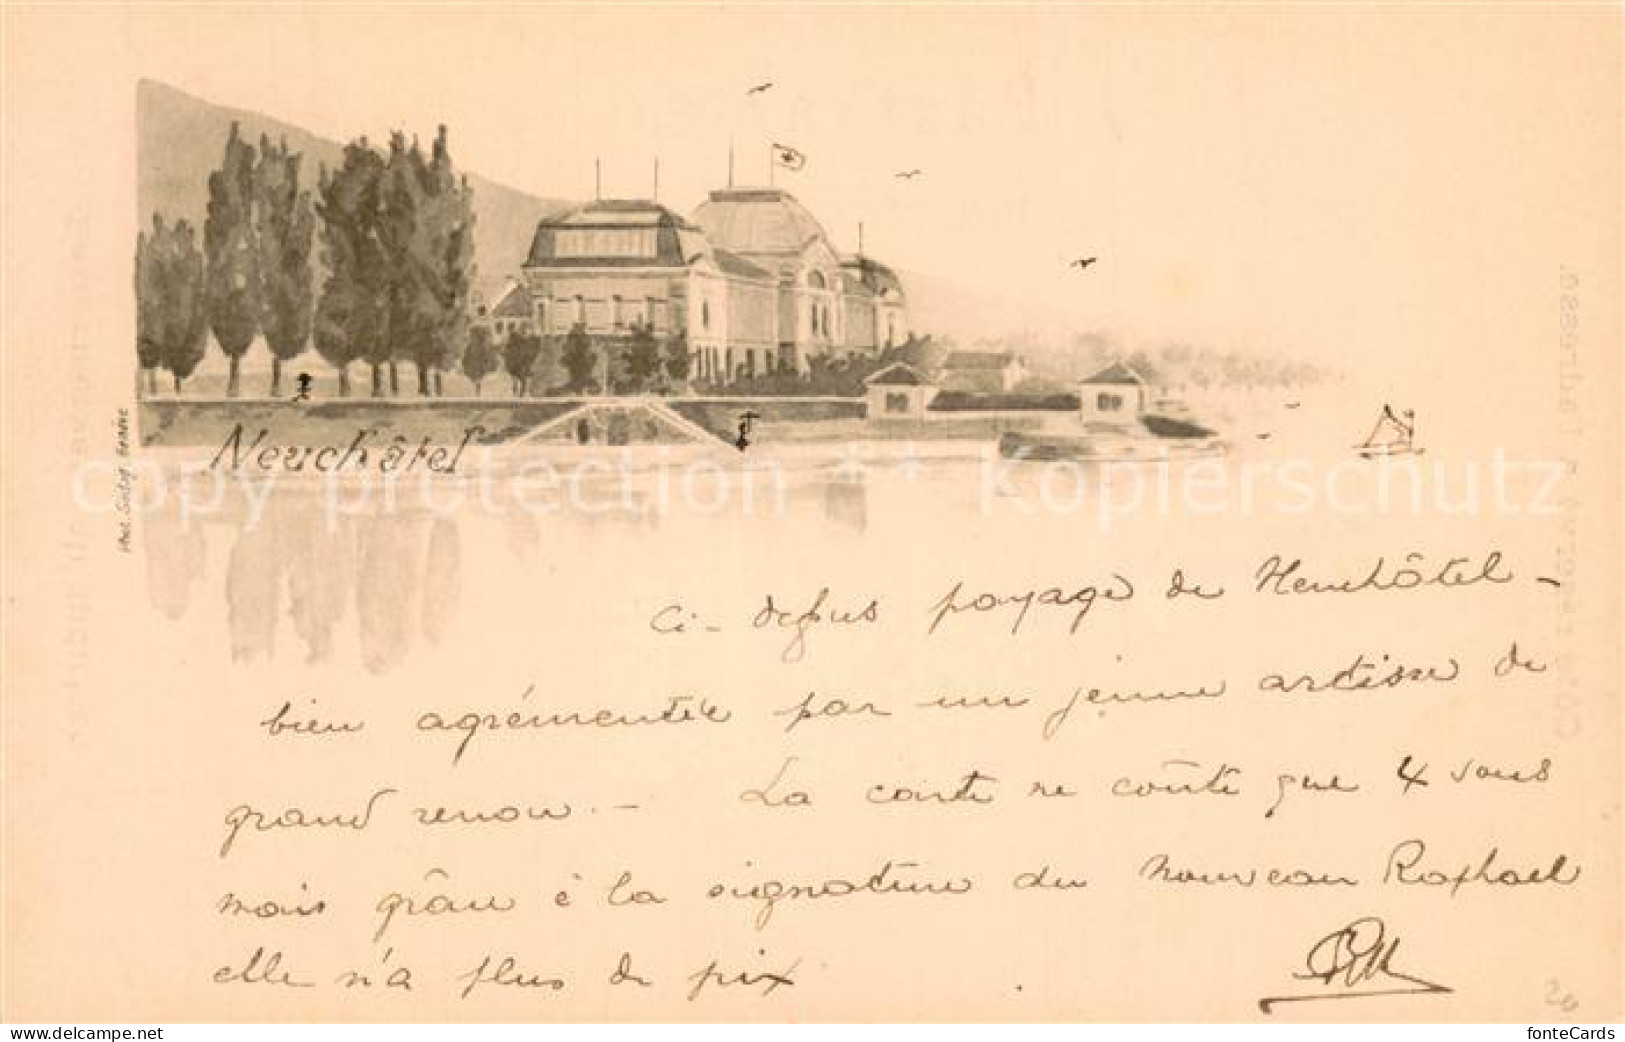 Neuchâtel
copy protection ** Kopierschutz
Ci-dessus paysage de Neuchâtel -
bien agrémentée par un jeune artiste de
grand renom. - La carte ne coûte que 4 sous
mais grâce à la signature du nouveau Raphael
elle n'a plus de prix
20
www.delcampe.net
fonteCards